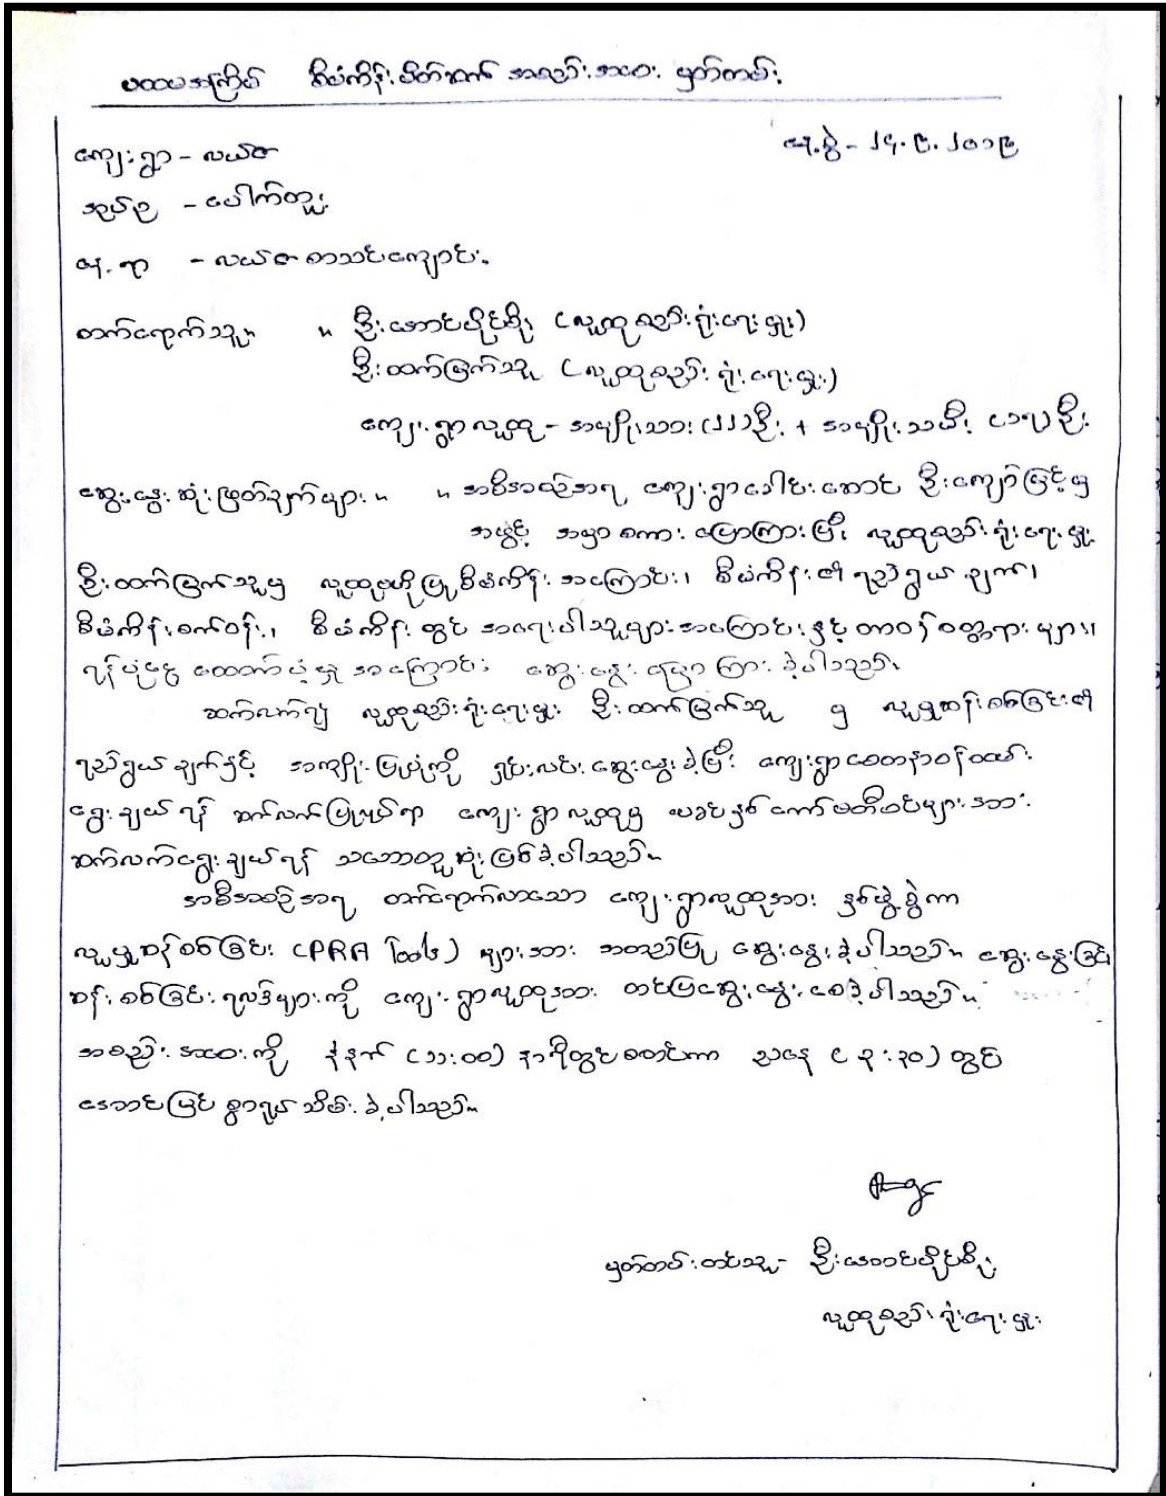 ပထမအကြိမ် စီမံကိန်းမိတ်ဆက် အစည်းအဝေး မှတ်တမ်း
နေ့စွဲ - ၂၄.၉.၂၀၁၉
ကျေးရွာ - လယ်ဇ
အုပ်စု - ပေါက်တူး
နေ့ရာ - လယ်ဇ စာသင်ကျောင်း
တက်ရောက်သူ။ ။ ဦးအောင်ပိုင်စိုး (လူထုစည်းရုံးရေးမှူး)
ဦးထက်မြက်သူ (လူထုစည်းရုံးရေးမှူး)
ကျေးရွာလူထု - အမျိုးသား (၂၂) ဦး + အမျိုးသမီး (၁၅) ဦး
ဆွေးနွေးဆုံးဖြတ်ချက်များ။ ။ အစီအစဉ်အရ ကျေးရွာခေါင်းဆောင် ဦးကျော်မြင့်မှ
အဖွင့် အမှာစကား ပြောကြားပြီး လူထုစည်းရုံးရေးမှူး
ဦးထက်မြက်သူမှ လူထုဗဟိုပြုစီမံကိန်းအကြောင်း၊ စီမံကိန်း၏ ရည်ရွယ်ချက်၊
စီမံကိန်းစက်ဝန်း၊ စီမံကိန်းတွင် အရေးပါသူများအကြောင်းနှင့် တာဝန်ဝတ္တရားများ၊
ရန်ပုံငွေ ထောက်ပံ့မှု အကြောင်း ဆွေးနွေး ပြောကြားခဲ့ပါသည်။
ဆက်လက်၍ လူထုစည်းရုံးရေးမှူး ဦးထက်မြက်သူ မှ လူမှုဆန်းစစ်ခြင်း၏
ရည်ရွယ်ချက်နှင့် အကျိုးပြုပုံကို ရှင်းလင်းဆွေးနွေးခဲ့ပြီး ကျေးရွာစေတနာဝန်ထမ်း
ရွေးချယ်ရန် ဆက်လက်ပြုလုပ်ရာ ကျေးရွာလူထုမှ ယခင်နှစ်ကော်မတီဝင်များအား
ဆက်လက်ရွေးချယ်ရန် သဘောတူဆုံးဖြတ်ခဲ့ပါသည်။
အစီအစဉ်အရ တက်ရောက်လာသော ကျေးရွာလူထုအား နှစ်ဖွဲ့ခွဲကာ
လူမှုဆန်းစစ်ခြင်း (PRA Tools) များအား အတည်ပြု ဆွေးနွေးခဲ့ပါသည်။ ဆွေးနွေးခြင်း
ဆန်းစစ်ခြင်းရလဒ်များကို ကျေးရွာလူထုအား တင်ပြဆွေးနွေးစေခဲ့ပါသည်။
အစည်းအဝေးကို နံနက် (၁၁:၀၀) နာရီတွင်စတင်ကာ ညနေ (၃:၃၀) တွင်
အောင်မြင်စွာရုပ်သိမ်းခဲ့ပါသည်။
မှတ်တမ်းတင်သူ - ဦးအောင်ပိုင်စိုး
လူထုစည်းရုံးရေးမှူး